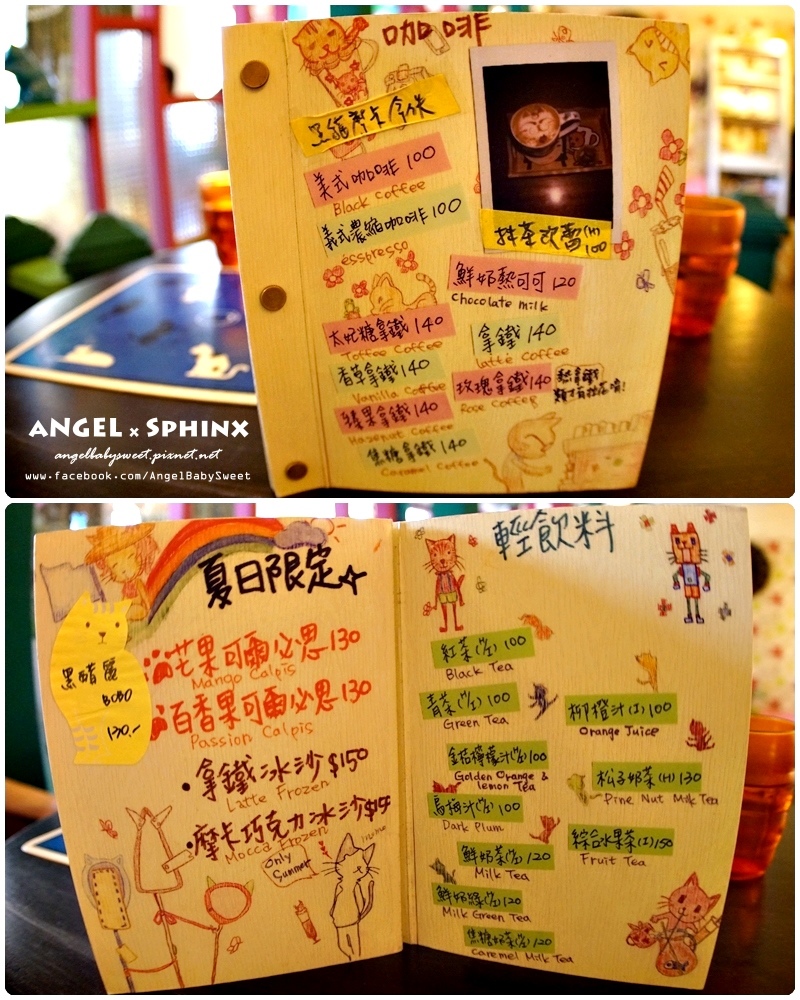 咖啡
美式咖啡 100
Black Coffee
義式濃縮咖啡 100
ésspresso
抹茶欧蕾(H)
100
鮮奶熱可可 120
Chocolate milk
太妃糖拿鐵 140
Toffee Coffee
拿鐵 140
latte coffee
香草拿鐵 140
Vanilla Coffee
玫瑰拿鐵 140
Rose Coffee
榛果拿鐵 140
Hazenut Coffee
焦糖拿鐵 140
Caramel Coffee
ANGEL x SPHINX
angelbabysweet.pixnet.net
www.facebook.com/AngelBabySweet
夏日限定
黑醋
BOBO
130.-
芒果可爾必思 130
Mango Calpis
百香果可爾必思 130
Passion Calpis
拿鐵冰沙 $150
Latte Frozen
摩卡巧克力冰沙
Mocca Frozen
Only
Summer
輕飲料
紅茶(H/I) 100
Black Tea
青茶(H/I) 100
Green Tea
金桔檸檬汁(H/I) 100
Golden Orange &
lemon Tea
烏梅汁(H/I) 100
Dark Plum
鮮奶茶(H/I) 120
Milk Tea
鮮奶綠(H/I) 120
Milk Green Tea
焦糖奶茶(H/I) 120
Caremel Milk Tea
柳橙汁(I) 100
Orange Juice
松子奶茶(H) 130
Pine Nut Milk Tea
綜合水果茶(I) 150
Fruit Tea